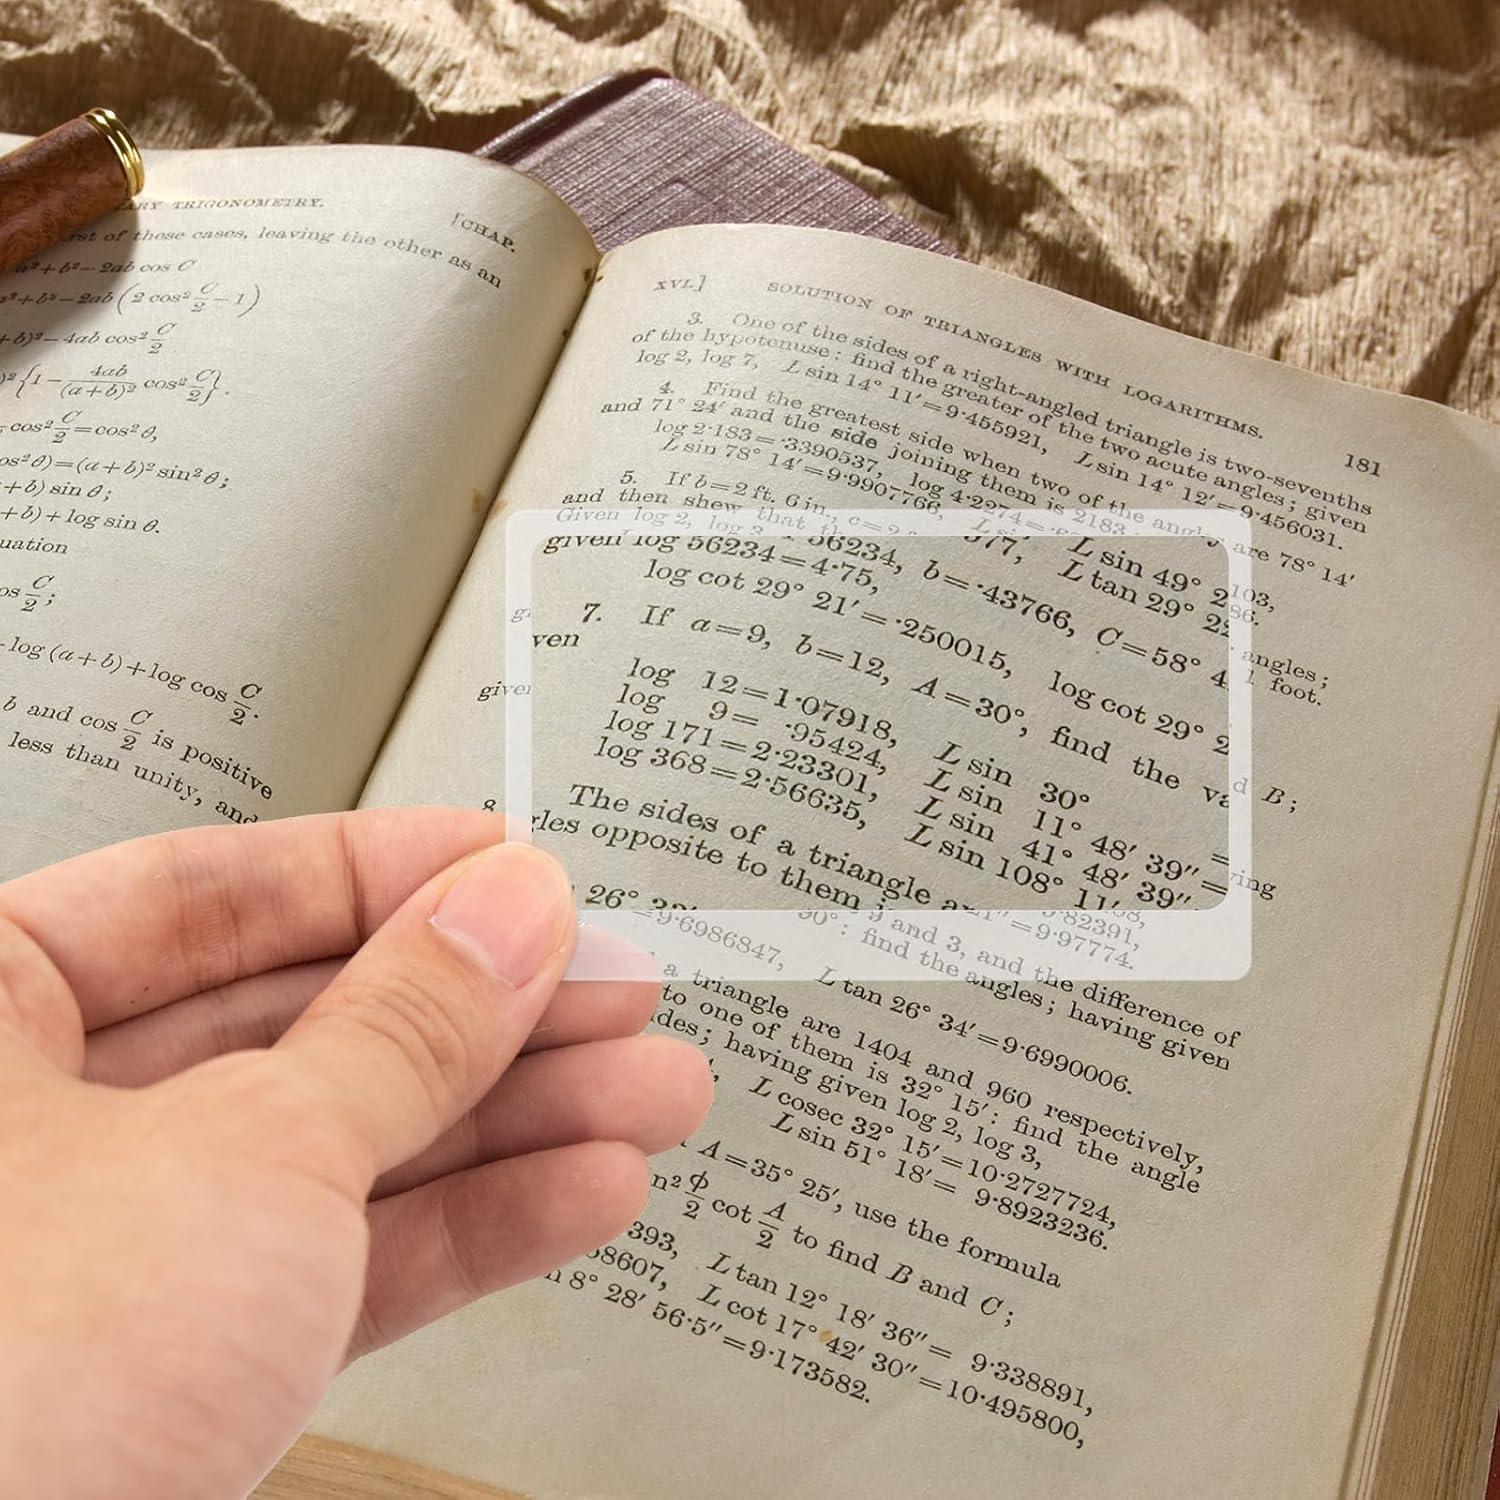 ARY TRIGONOMETRY.
[CHAP.
rst of these cases, leaving the other as an
a²+b²−2ab cos C
a²+b²−2ab(2 cos² C/2 −1)
+b)²−4ab cos² C/2
)²{1− 4ab/(a+b)² cos² C/2}.
cos² C/2=cos² θ,
os² θ)=(a+b)² sin² θ;
+b) sin θ;
+b)+log sin θ.
uation
os C/2;
log (a+b)+log cos C/2.
b and cos C/2 is positive
less than unity, and
XVI.] SOLUTION OF TRIANGLES WITH LOGARITHMS. 181
3. One of the sides of a right-angled triangle is two-sevenths
of the hypotenuse: find the greater of the two acute angles; given
log 2, log 7, L sin 14° 11′=9·455921, L sin 14° 12′=9·456031.
4. Find the greatest side when two of the angles are 78° 14′
and 71° 24′ and the side joining them is 2183
log 2·183=·3390537, log 4·2274=
L sin 78° 14′=9·9907766, L
5. If b=2 ft. 6 in., c=2
and then shew that
Given log 2, log 3
577, L sin 49° 2 103,
L tan 29° 22 86.
56234, b=·43766, C=58° 4 angles;
given log 56234=4·75, 1 foot.
log cot 29° 21′=·250015, log cot 29° 2
7. If a=9, b=12, A=30°, find the va d B;
given
ven
given
log 12=1·07918, L sin 30°
log 9= ·95424, L sin 11° 48′ 39″=
log 171=2·23301, L sin 41° 48′ 39″=
log 368=2·56635, L sin 108° 11′
9·82391,
=9·97774.
8. The sides of a triangle ving
gles opposite to them
9 and 3, and the difference of
90°: find the angles; having given
26° 33′
=9·6986847, L tan 26° 34′=9·6990006.
a triangle are 1404 and 960 respectively,
to one of them is 32° 15′: find the angle
ides; having given log 2, log 3,
L cosec 32° 15′=10·2727724,
L sin 51° 18′= 9·8923236.
A=35° 25′, use the formula
n² φ/2 cot A/2 to find B and C;
393, L tan 12° 18′ 36″= 9·338891,
58607, L cot 17° 42′ 30″=10·495800,
n 8° 28′ 56·5″=9·173582.